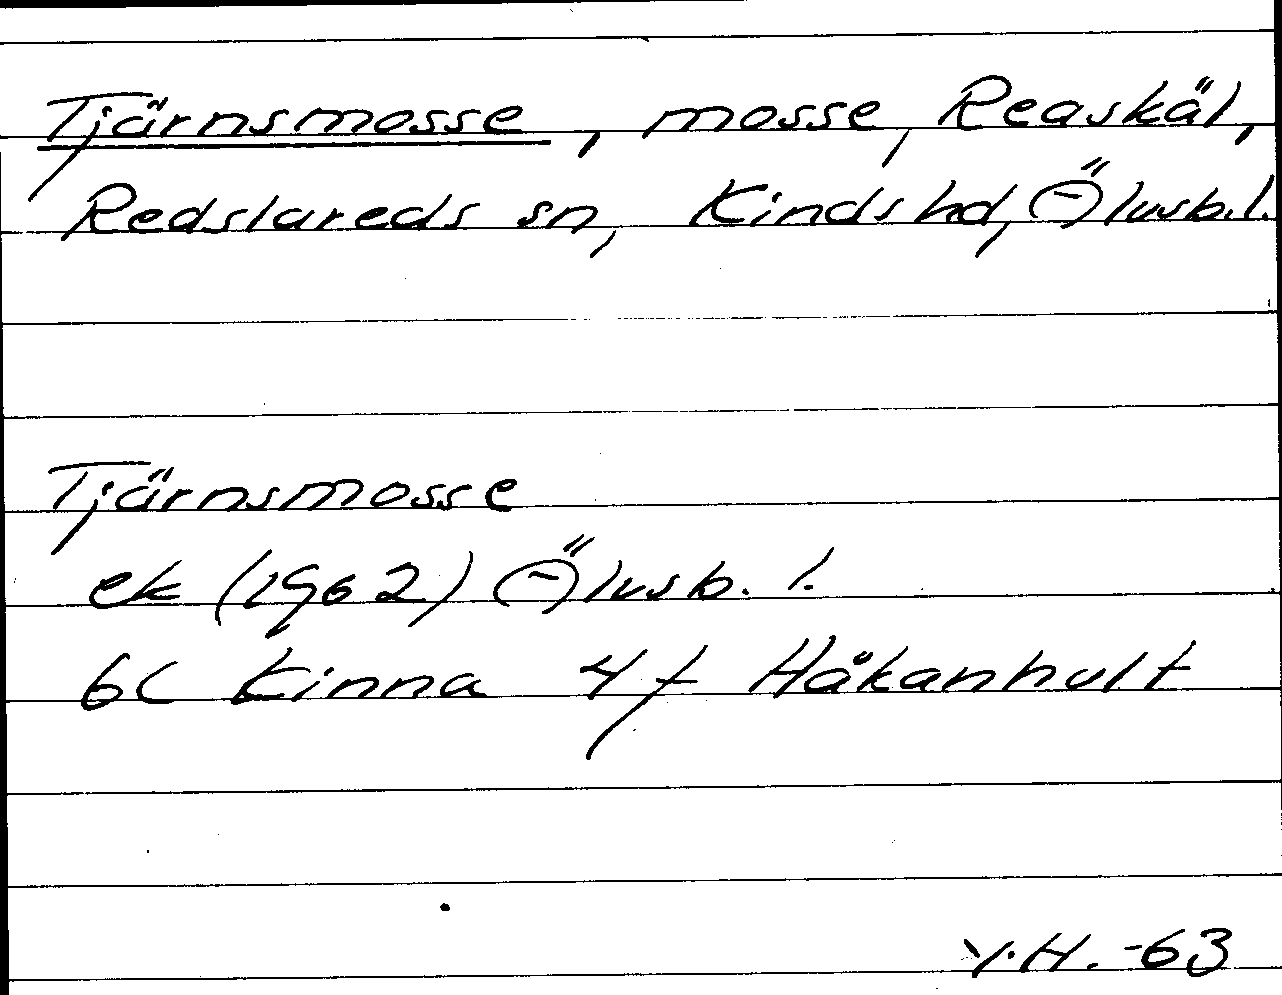 Tjärnsmosse, mosse, Reaskäl,
Redslareds sn, Kinds hd, Älvsb. l.
Tjärnsmosse
ek (1962) Älvsb. l.
6C Kinna 4 f Håkanhult
Y.H. -63